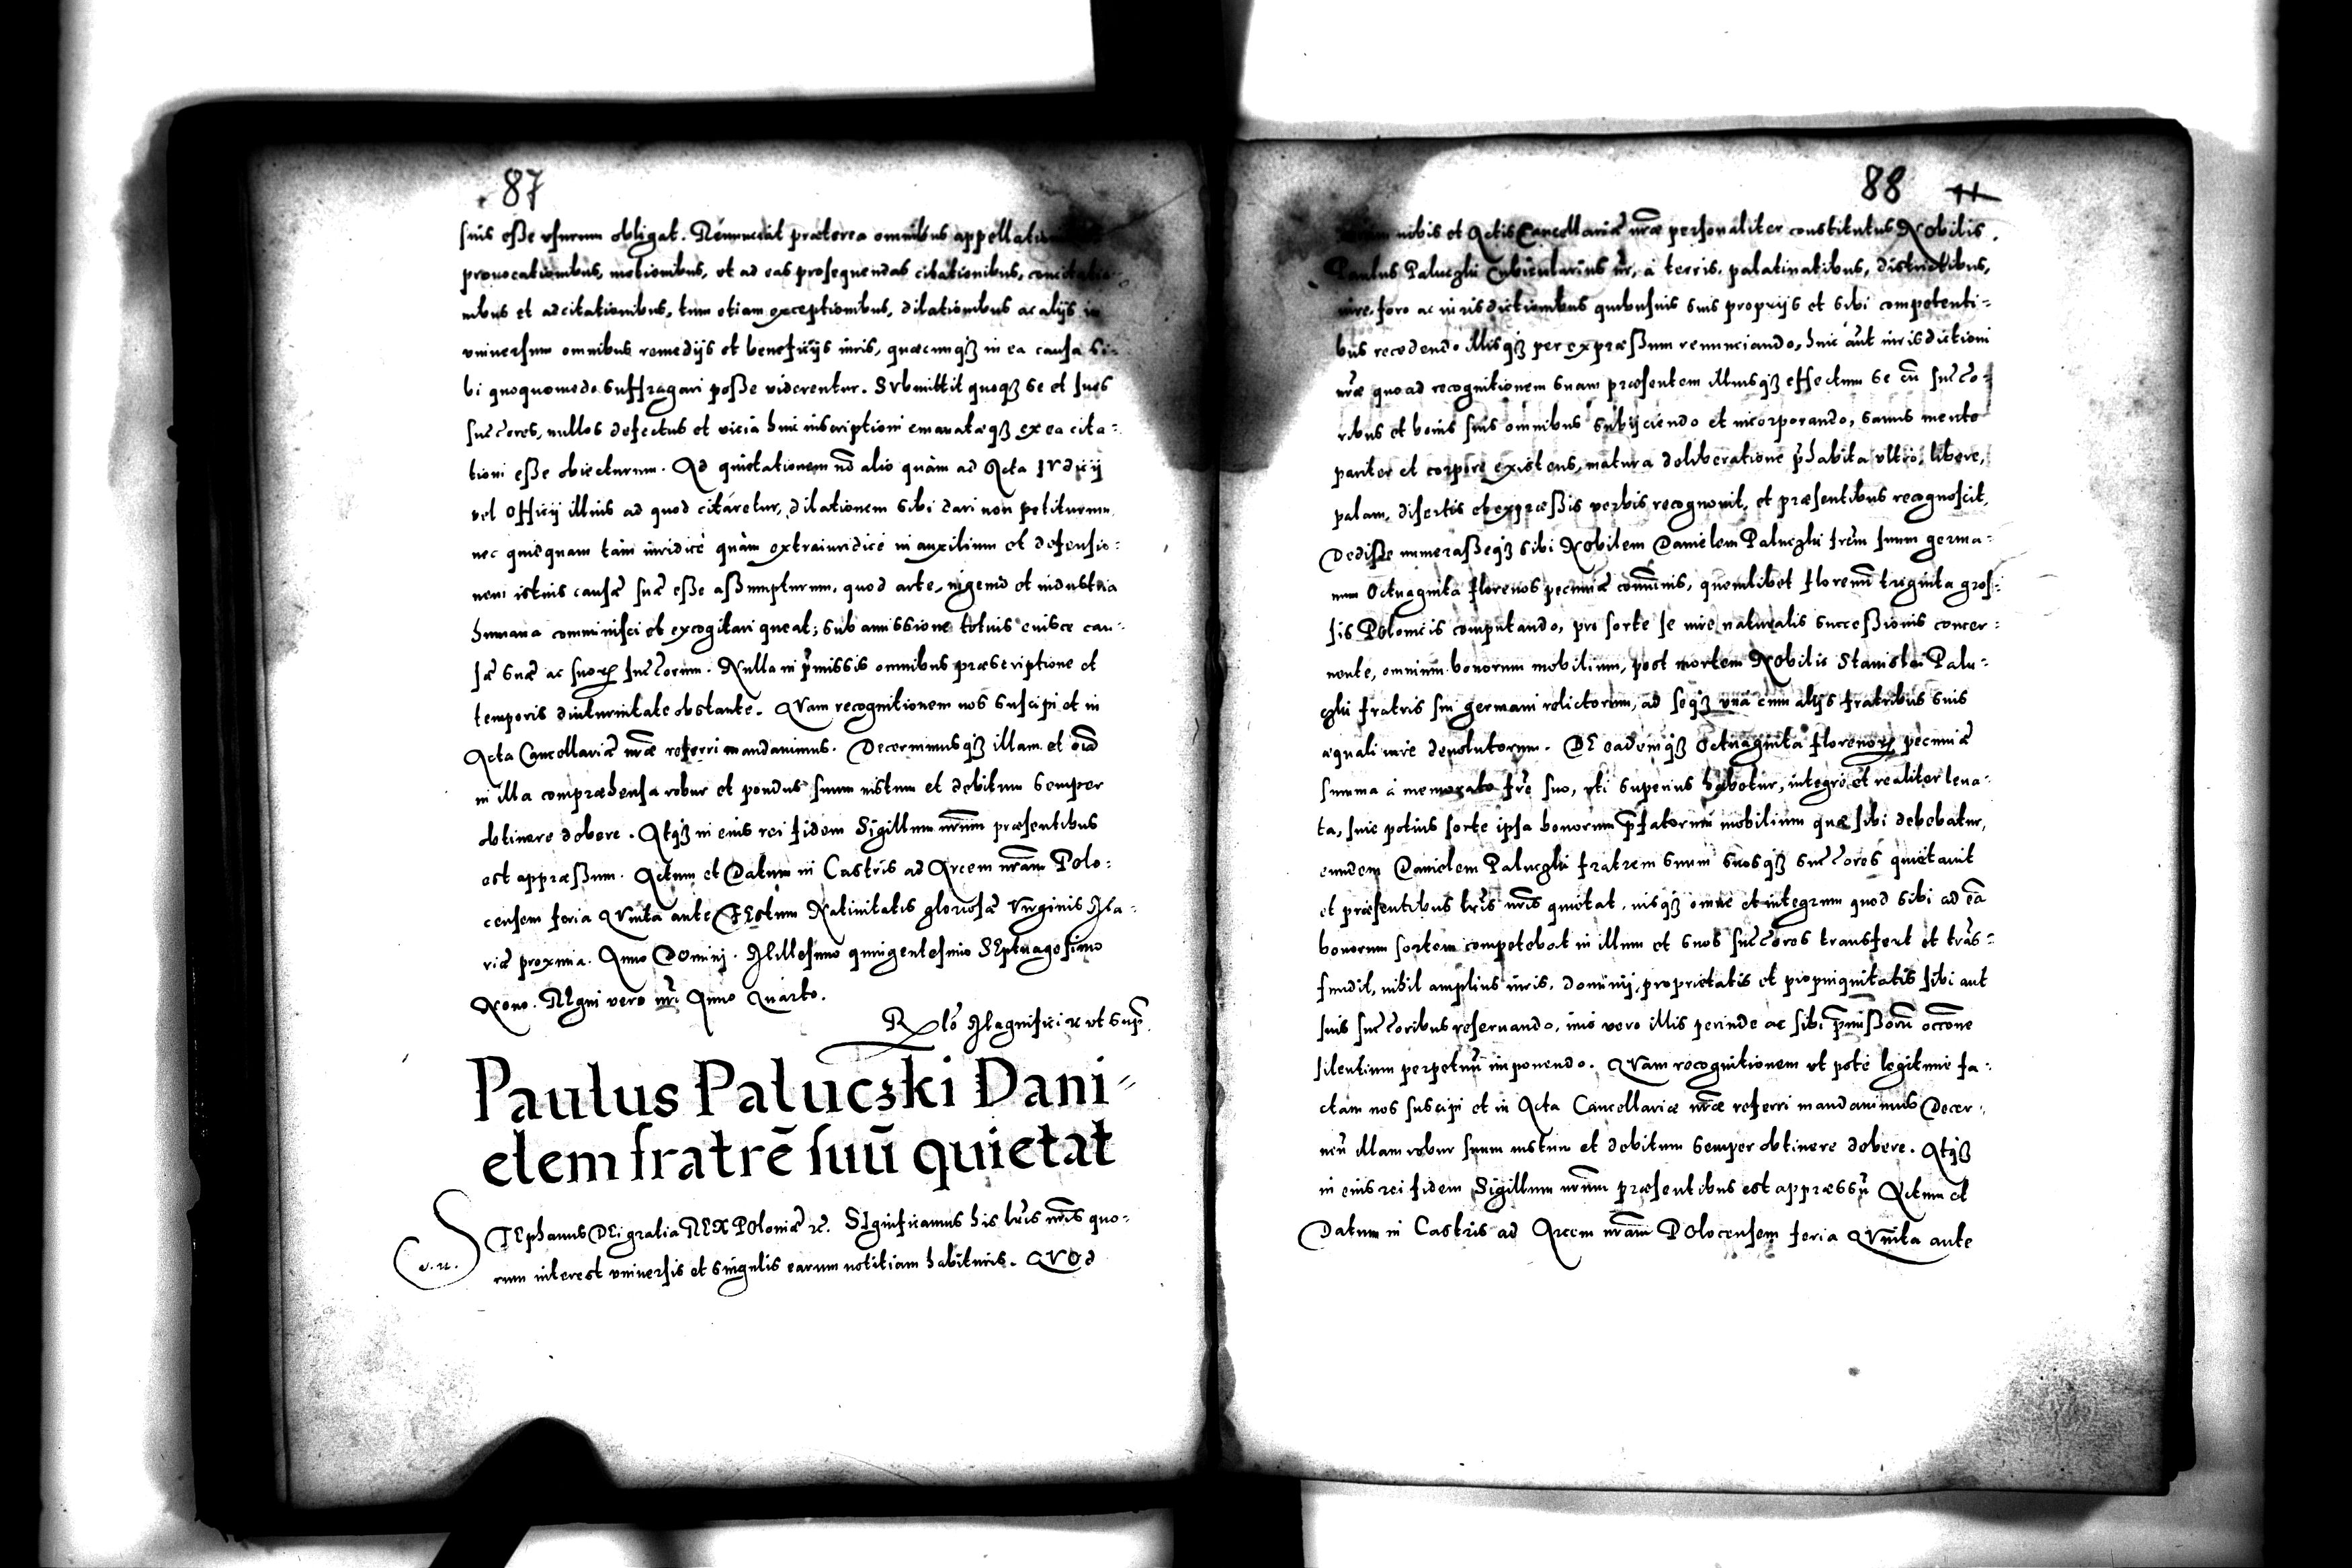 87
suis esse usurum obligat. Renunciat præterea omnibus
provocationibus, motionibus, et ad eas prosequendas citationibus,
nibus et adcitationibus, tum etiam exceptionibus, dilationibus ac alijs in
universum omnibus remedijs et beneficijs iuris, quæcunqȝ in ea causa si-
bi quoquomodo suffragari posse viderentur. Submittit quoqȝ se et suos
succ̃ores, nullos defectus et vicia huic inscriptioni emanatæqȝ ex ea cita-
tioni esse obiecturum. Ad quietationem nõ alio quàm ad Acta Iudicij
vel Officij illius ad quod citaretur, dilationem sibi dari non petiturum,
nec quidquam tàm iuridicè quàm extraiuridicè in auxilium et defensio-
nem istius causæ suæ esse assumpturum, quod arte, ingenio et industria
humana comminisci et excogitari queat; sub amissione totius eiusce cau-
sæ suæ ac suoꝝ succ̃orum. Nulla in p̃missis omnibus præscriptione et
temporis diuturnitate obstante. Quam recognitionem nos suscipi et in
Acta Cancellariæ nr̃æ referri mandauimus. Decernimusqȝ illam et oĩa
in illa compræhensa robur et pondus suum iustum et debitum semper
obtinere debere. Atqȝ in eius rei fidem Sigillum nr̃um præsentibus
est appræssum. Actum et Datum in Castris ad Arcem nr̃am Polo-
censem feria Quinta ante Festum Natiuitatis gloriosæ Virginis Ma-
riæ proxima. Anno Domini. Millesimo quingentesimo Septuagesimo
Nono. Regni vero nr̃i Anno Quarto.
Rlõ Magnifici ꝛc ut sup̃.
Paulus Paluczki Dani-
elem fratrẽ suũ quietat
Stephanus Dei gratia Rex Poloniæ ꝛc. Significamus his lr̃is nr̃is quo-
rum interest vniuersis et singulis earum notitiam habituris. Quod
88
nobis et Actis Cancellariæ nr̃æ personaliter constitutus Nobilis
Paulus Paluczki Cubicularius nr̃, à terris, palatinatibus, districtibus,
iure, foro ac iurisdictionibus quibusuis suis proprijs et sibi competenti-
bus recedendo illisqȝ per expræssum renunciando, huic aũt iurisdictioni
nr̃æ quoad recognitionem suam præsentem illiusqȝ effectum se cũ succ̃o-
ribus et bonis suis omnibus subijciendo et incorporando, sanus mente
pariter et corpore existens, matura deliberatione p̃habita ultrò, libere,
palam, disertis et expræssis verbis recognouit, et præsentibus recognoscit,
Dedisse numerasseqȝ sibi Nobilem Danielem Paluczki frẽm suum germa-
num Octuaginta florenos pecuniæ com̃unis, quemlibet florenũ triginta gros-
sis Polonicis computando, pro sorte se iure naturalis successionis concer-
nente, omnium bonorum mobilium, post mortem Nobilis Stanislai Palu-
czki fratris sui germani relictorum, ad seqȝ vnà cum alijs fratribus suis
æquali iure deuolutorum. De eademqȝ Octuaginta florenoꝝ pecuniæ
summa à memorato fr̃e suo, vti superius habetur, integrè et realiter leua-
ta, siue potius sorte ipsa bonorum p̃fatorum mobilium quæ sibi debebatur,
eundem Danielem Paluczki fratrem suum suosqȝ succ̃ores quietauit
et præsentibus lr̃is nr̃is quietat, iusqȝ omne et integrum quod sibi ad eã
bonorum sortem competebat in illum et suos succ̃ores transfert et trãs-
fundit, nihil amplius iuris, dominij, proprietatis et propinquitatis sibi aut
suis succ̃oribus reseruando, imò vero illis perinde ac sibi p̃missorũ occ̃one
silentium perpetuũ imponendo. Quam recognitionem ut pote legitimè fa-
ctam nos suscipi et in Acta Cancellariæ nr̃æ referri mandauimus Decer-
nẽn illam robur suum iustum et debitum semper obtinere debere. Atqȝ
in eius rei fidem Sigillum nr̃um præsentibus est appræssũ Actum et
Datum in Castris ad Arcem nr̃am Polocensem feria Quinta ante